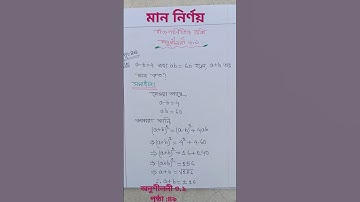 মান নির্ণয়
অনুশীলনী ৩.১
a-b=4 এবং ab = 60 হলে, a+b এর
মান কত?
সমাধান:
দেওয়া আছে,
a-b=4
ab = 60
আমরা জানি,
(a+b)² = (a-b)² + 4ab
⇒ (a+b)² = 4² + 4·60
⇒ (a+b)² = 16 + 240
⇒ (a+b)² = 256
⇒ a+b = √256
∴ a+b = ±16
অনুশীলনী ৩.১